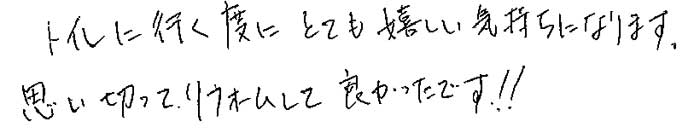 トイレに行く度にとても嬉しい気持ちになります。
思い切って、リフォームして良かったです!!